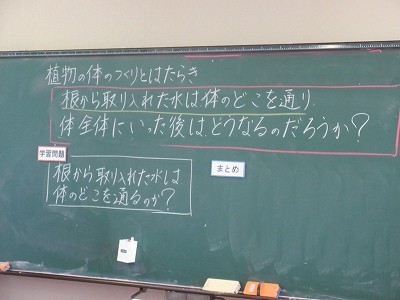 植物の体のつくりとはたらき
根から取り入れた水は体のどこを通り
体全体にいった後は、どうなるのだろうか？
学習問題
根から取り入れた水は
体のどこを通るのか？
まとめ